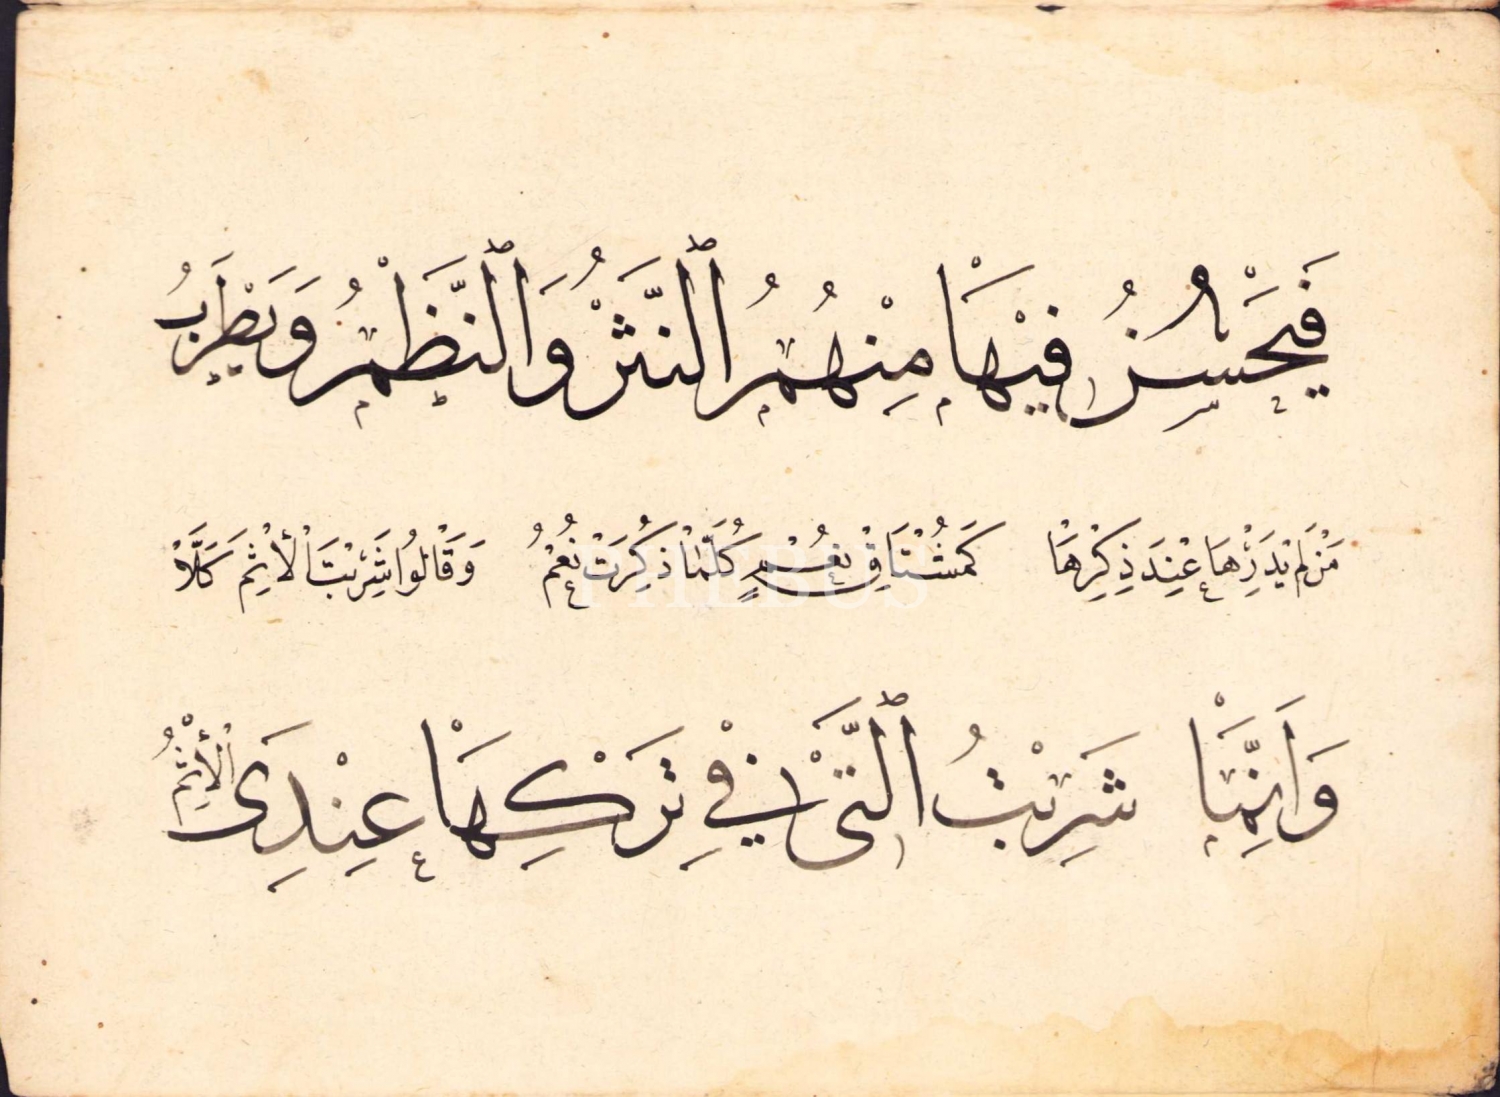 فَيَحْسُنُ فِيْهَا مِنْهُمُ ٱلنَّثْرُ وَٱلنَّظْمُ وَيَطْرَبُ
مَنْ لَمْ يَدْرِهَا عِنْدَ ذِكْرِهَا كَمُشْتَاقِ نُعْمٍ كُلَّمَا ذُكِرَتْ نُعْمُ وَقَالُوا شَرِبْتَ الْأِثْمَ كَلَّا
وَاِنَّمَا شَرِبْتُ ٱلَّتِى فِي تَرْكِهَا عِنْدِىَ الْأِثْمُ
PHEBUS